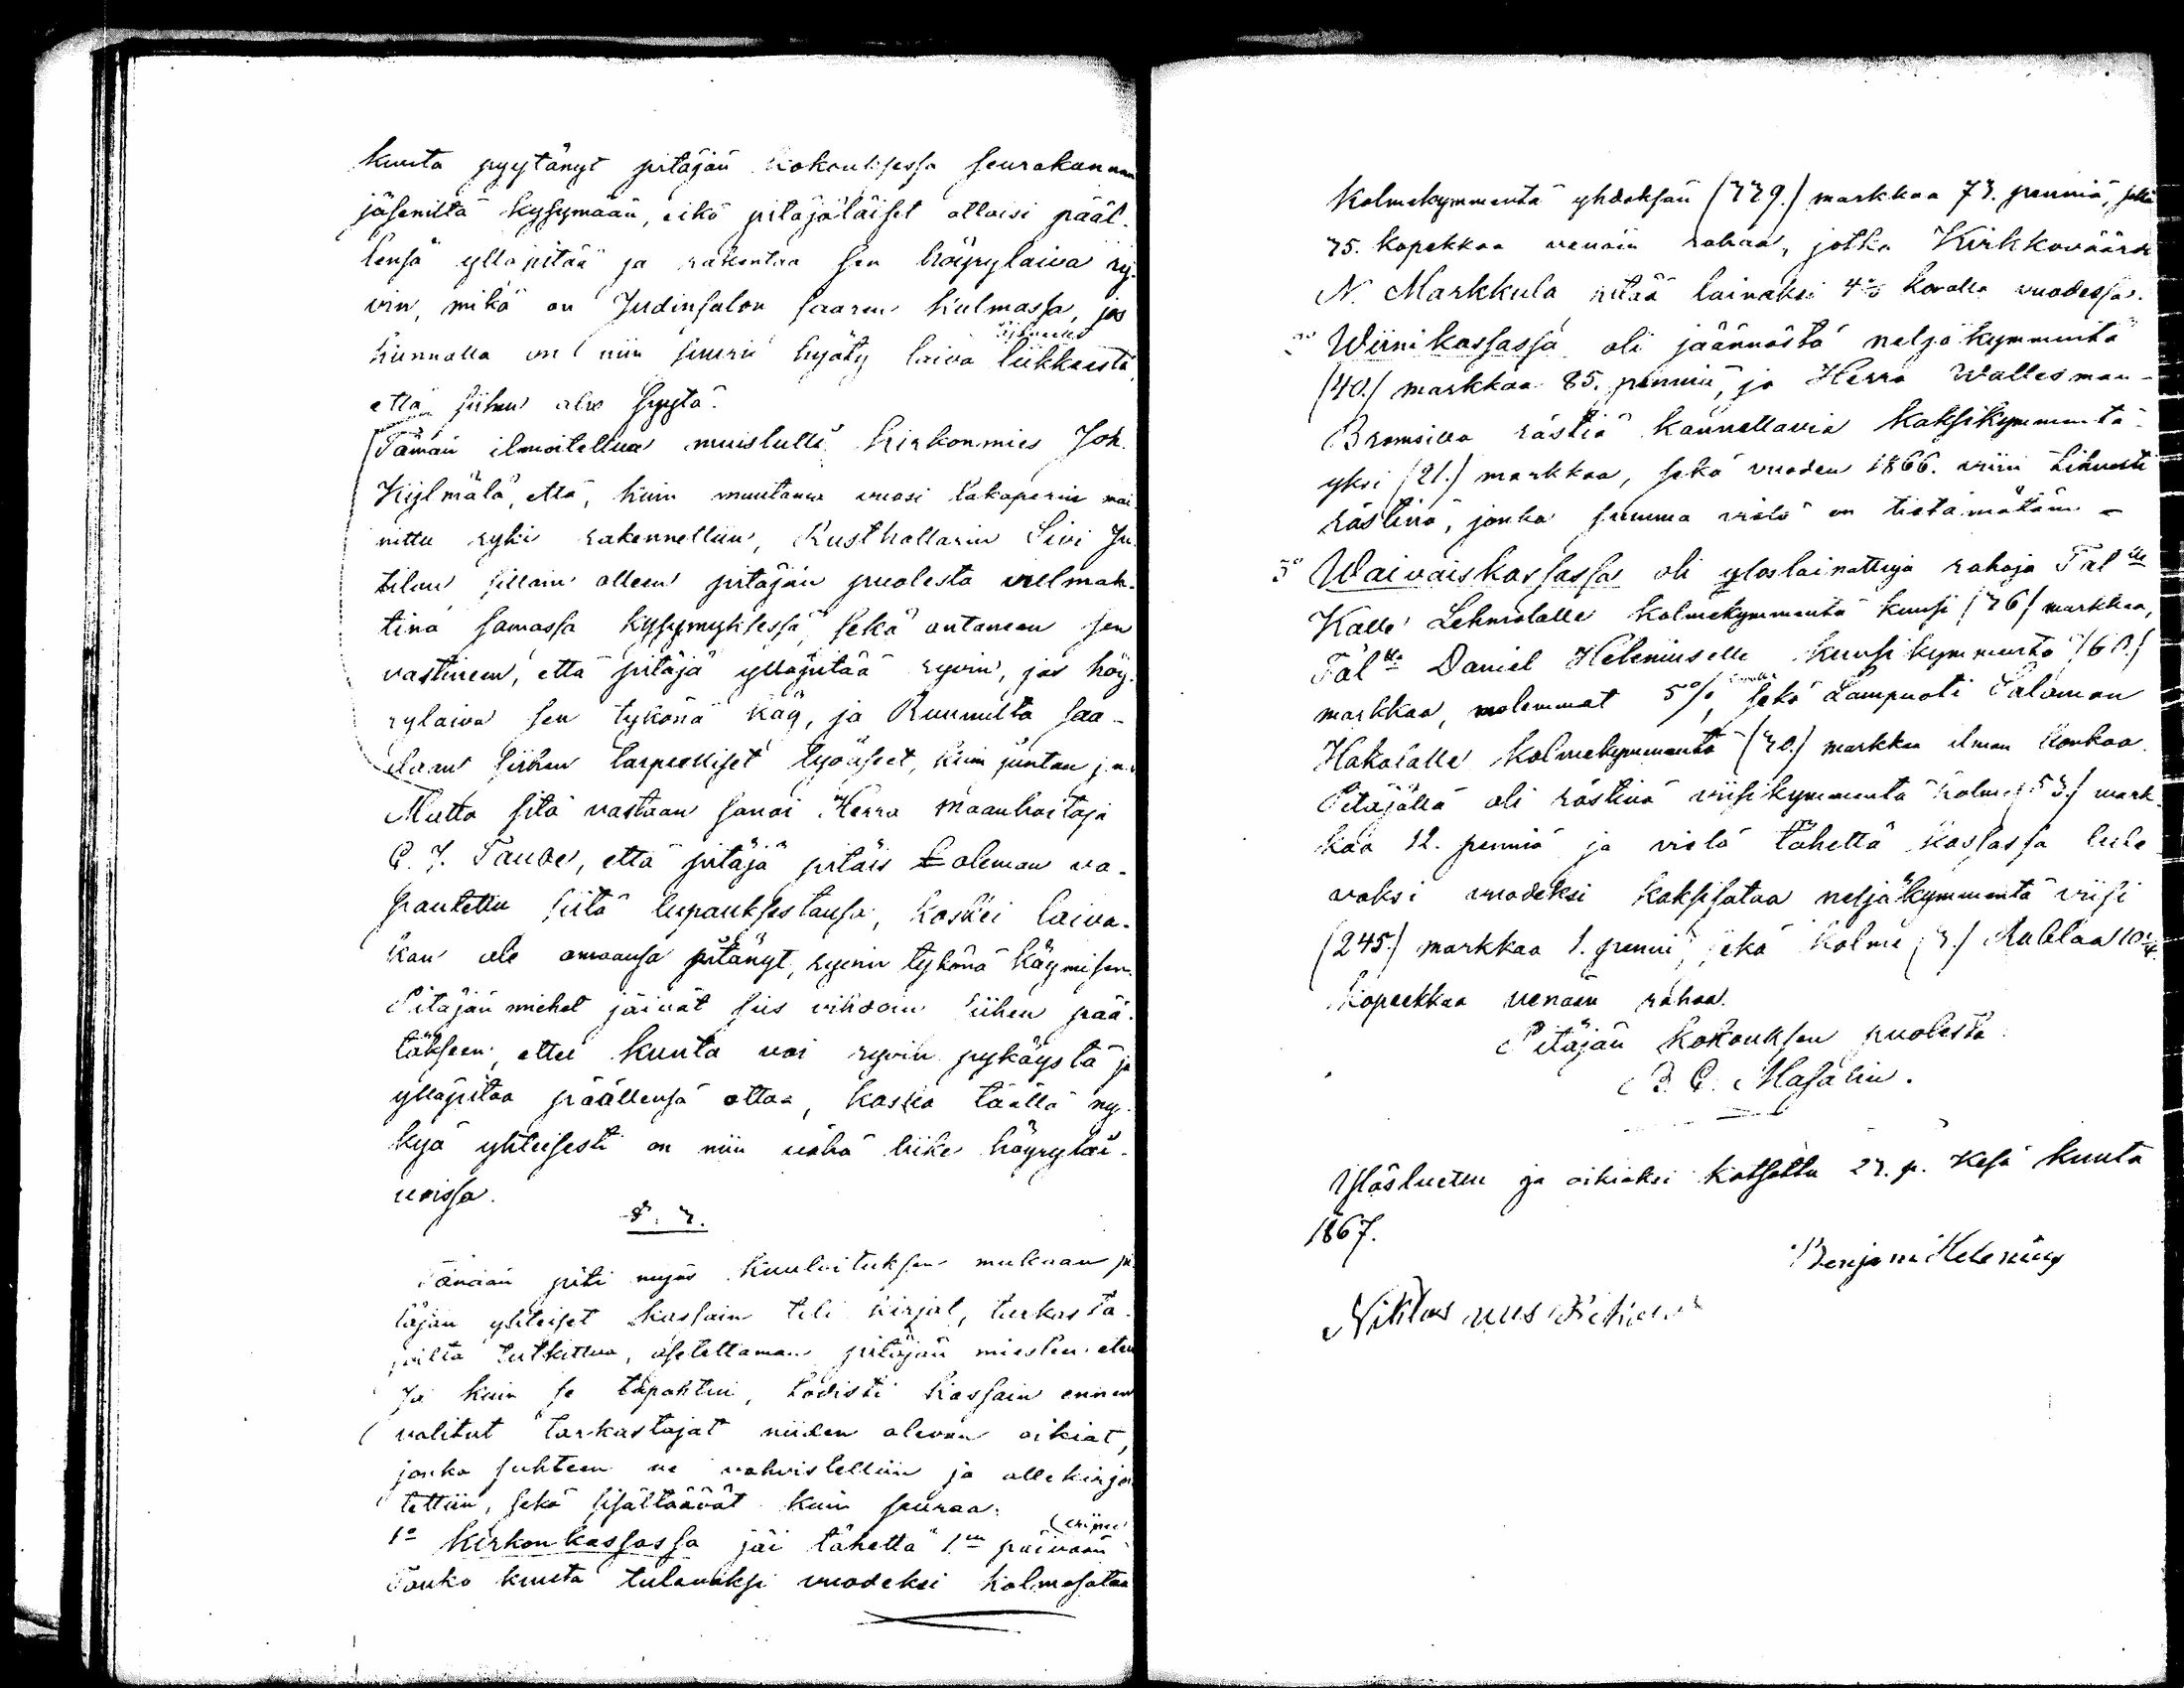 kuuta pyytänyt pitäjän kokouksessa seurakunnan
jäseniltä kysymään, eikö pitäjäläiset ottaisi pääl-
lensä ylläpitää ja rakentaa sen höyrylaiva ry-
vin, mikä on Judinsalon saaren kulmassa, jos
kunnalla on niin suuri hyöty laiva liikkeestä
että siihen olis syytä.
Tämän ilmoitettua muistutti kirkonmies Joh.
Kylmälä, että, kuin muutama vuosi takaperin mai-
nittu ryki rakennettiin, Rusthollarin Sivi Ju-
tilan silloin olleen pitäjän puolesta valmah-
tina samassa kysymyksessä, sekä antaneen sen
vastineen, että pitäjä ylläpitää ryvin, jos höy-
rylaiva sen tykönä käy, ja Ruunulta saa-
daan siihen tarpeelliset työaseet, kuin juntan j.n.
Mutta sitä vastaan sanoi Herra Maanhoitaja
C. J. Taube, että pitäjä pitäis oleman va-
pautettu siitä lupauksestansa, koskei laiva-
kan ole omaansa pitänyt, ryvin tykönä käymisen.
Pitäjän miehet jäivät siis vihdoin siihen pää-
tökseen, ettei kunta voi ryvin pykäystä ja
ylläpitoa päällensä ottaa, koska täällä ny-
kyä yhteisesti on niin vähä liike höyrylai-
voissa.
§. 3.
Tänään piti myös kuuloituksen mukaan pi-
täjän yhteiset kassain tili kirjat, tarkasta-
jilta tutkittua, asetettaman pitäjän miesten eteen
Ja kuin se tapahtui, todisti kassain ennen
valitut tarkastajat niiden olevan oikiat,
jonka suhteen ne vahvistettiin ja allekirjoi-
tettiin, sekä sisältäävät kuin seuraa:
1o Kirkonkassassa jäi tähettä 1en päivään
Touko kuuta tulevaksi vuodeksi kolmesataa
Kolmekymmentä yhdeksän (339.) markkaa 73. penniä, sekä
75. kopekkaa venäin rahaa, jotka Kirkkoväärdi
N. Markkula pitää lainaksi 4% korolla vuodessa.
2o Wiinikassassa oli jäännöstä neljäkymmentä
(40.) markkaa 85. penniä, ja Herra Wallesman-
Bromsilla rästiä kannettavia kaksikymmentä
yksi (21.) markkaa, sekä vuoden 1866. viini
rästinä, jonka summa vielä on tietämätöin -
3o Waivaiskassassa oli uloslainattuja rahoja Tallle
Kalle Lehmolalle kolmekymmentä kuusi (36) markkaa,
Tallle Daniel Heleniuselle kuusikymmentä (60.)
markkaa, molemmat 5%, sekä Lampuoti Saloman
Hakalalle kolmekymmentä (30.) markkaa ilman korkoa.
Pitäjällä oli rästinä viisikymmentä kolme (53.) mark-
kaa 12. penniä ja vielä tähettä kassassa tule-
vaksi vuodeksi kaksisataa neljäkymmentä viisi
(245.) markkaa 1. penni, sekä kolme (3.) Rublaa 10
kopeekkaa venäin rahaa.
Pitäjän kokouksen puolesta
B. C. Masalin.
Ylösluettu ja oikiaksi katsottu 23. p. Kesä kuuta
1867.
Benjami Helenius
Niklas